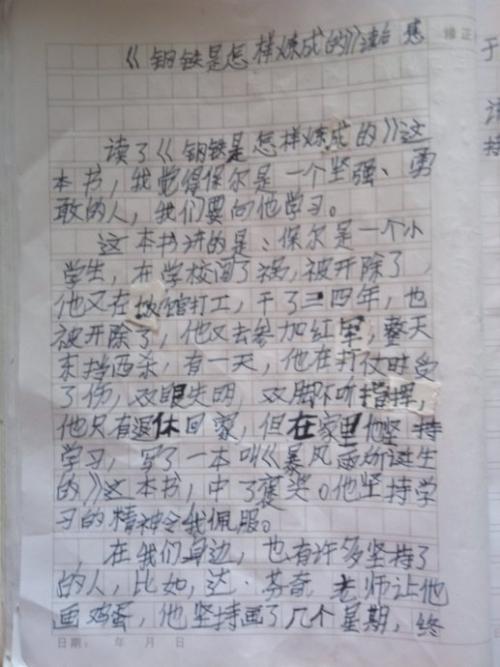 《钢铁是怎样炼成的》读后感
读了《钢铁是怎样炼成的》这
本书，我觉得保尔是一个坚强、勇
敢的人，我们要向他学习。
这本书讲的是：保尔是一个小
学生，在学校闯了祸，被开除了，
他又在饭馆打工，干了三四年，也
被开除了，他又去参加红军，整天
东挡西杀，有一天，他在打仗时受
了伤，双眼失明，双脚不听指挥，
他只有退休回家，但在家里他坚持
学习，写了一本叫《暴风雨所诞生
的》这本书，中了褒奖。他坚持学
习的精神令我佩服。
在我们身边，也有许多坚持了
的人，比如，达·芬奇，老师让他
画鸡蛋，他坚持画了几个星期，终
日期： 年 月 日
修正